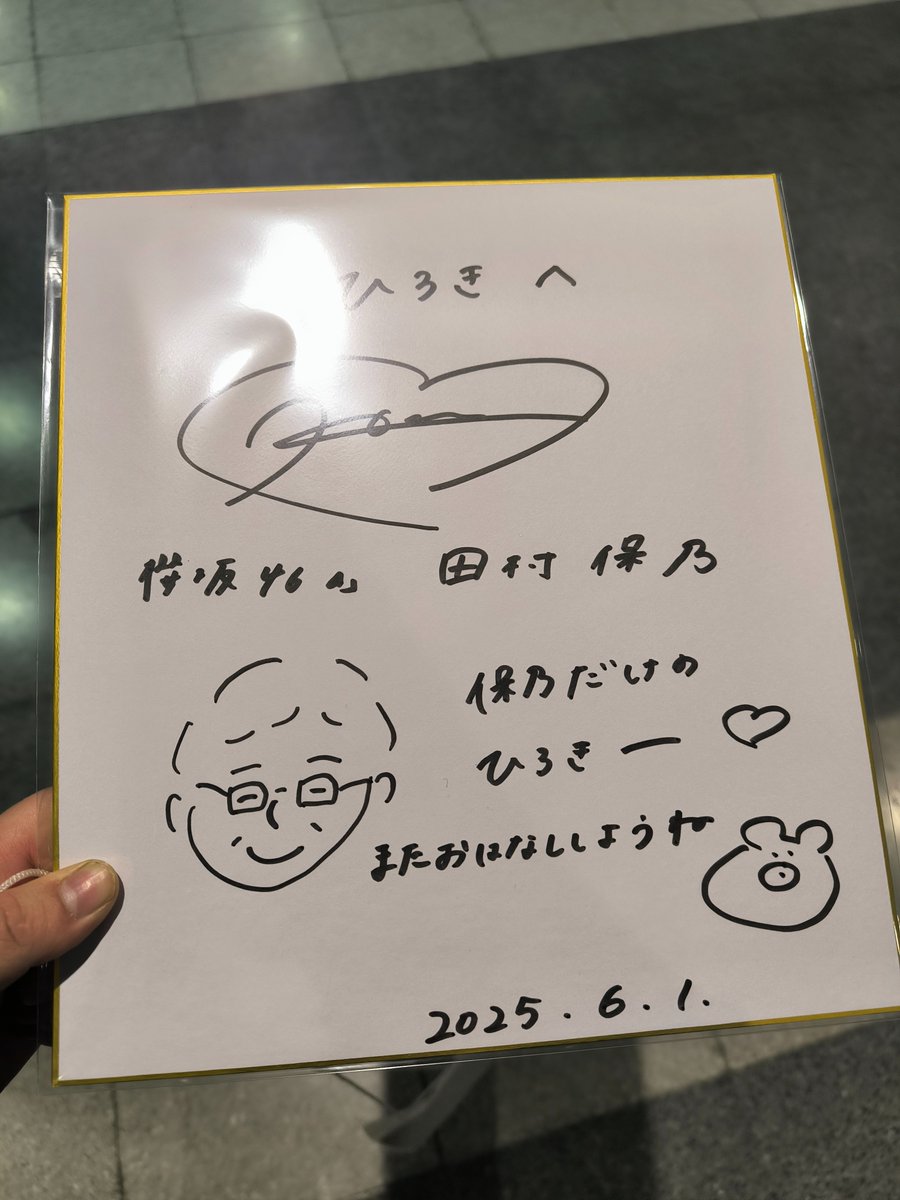 ひろきへ
櫻坂46 田村保乃
保乃だけの
ひろきー
またおはなししようね
2025.6.1.